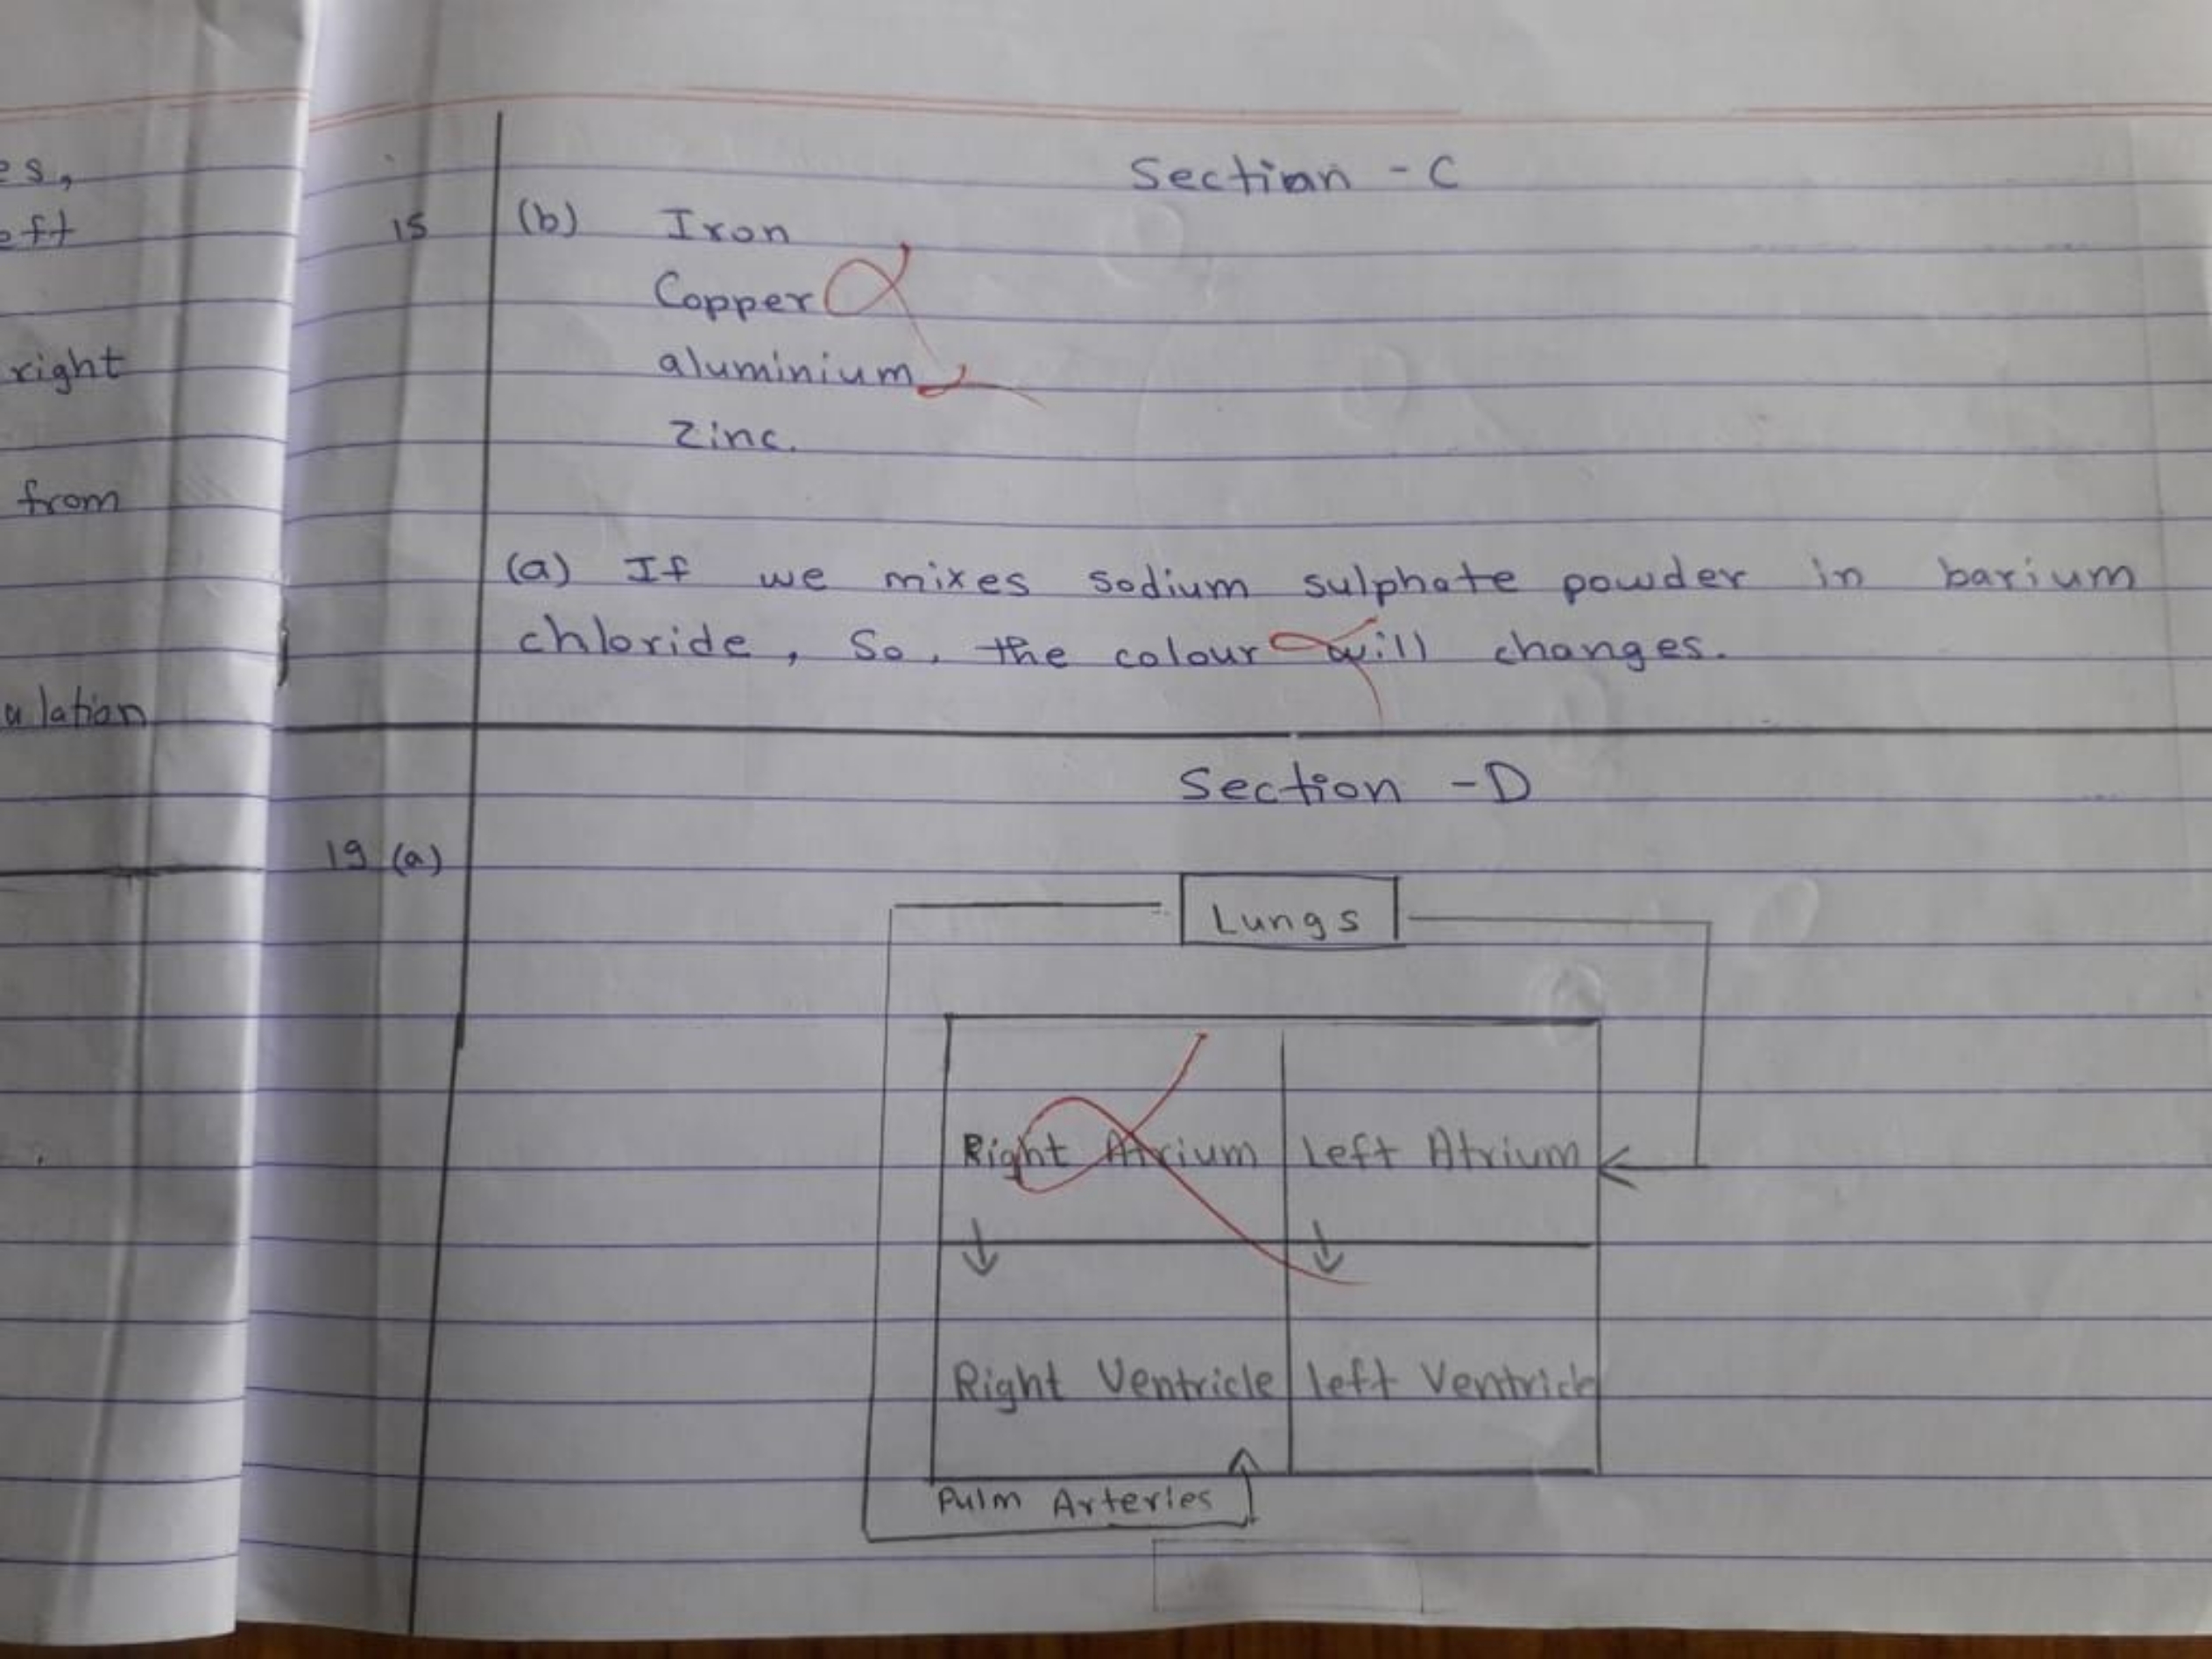 es,
eft
right
from
ulation
Section - C
15 (b) Iron
Copper
aluminium
Zinc.
(a) If we mixes sodium sulphate powder in barium
chloride, So, the colour will changes.
Section - D
19 (a)
Lungs
Right Atrium Left Atrium
Right Ventricle left Ventricle
Pulm Arteries